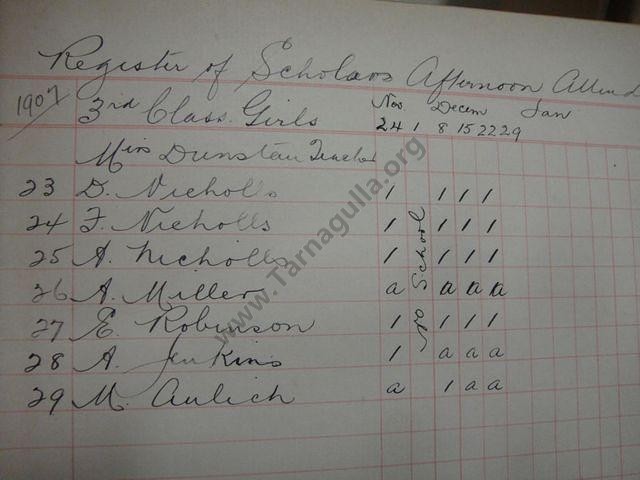 Register of Scholars Afternoon Atten
1907 3rd Class Girls Nov Decem Jan
24 1 8 15 22 29
Miss Dunstan Teacher
23 D. Nicholls 1 1 1 1
24 F. Nicholls 1 1 1 1
25 A. Nicholls 1 1 1 1
26 A. Miller a a a a
27 E. Robinson 1 1 1 1
28 A. Jenkins 1 a a a
29 M. Aulich a 1 a a
No School
www.Tarnagulla.org